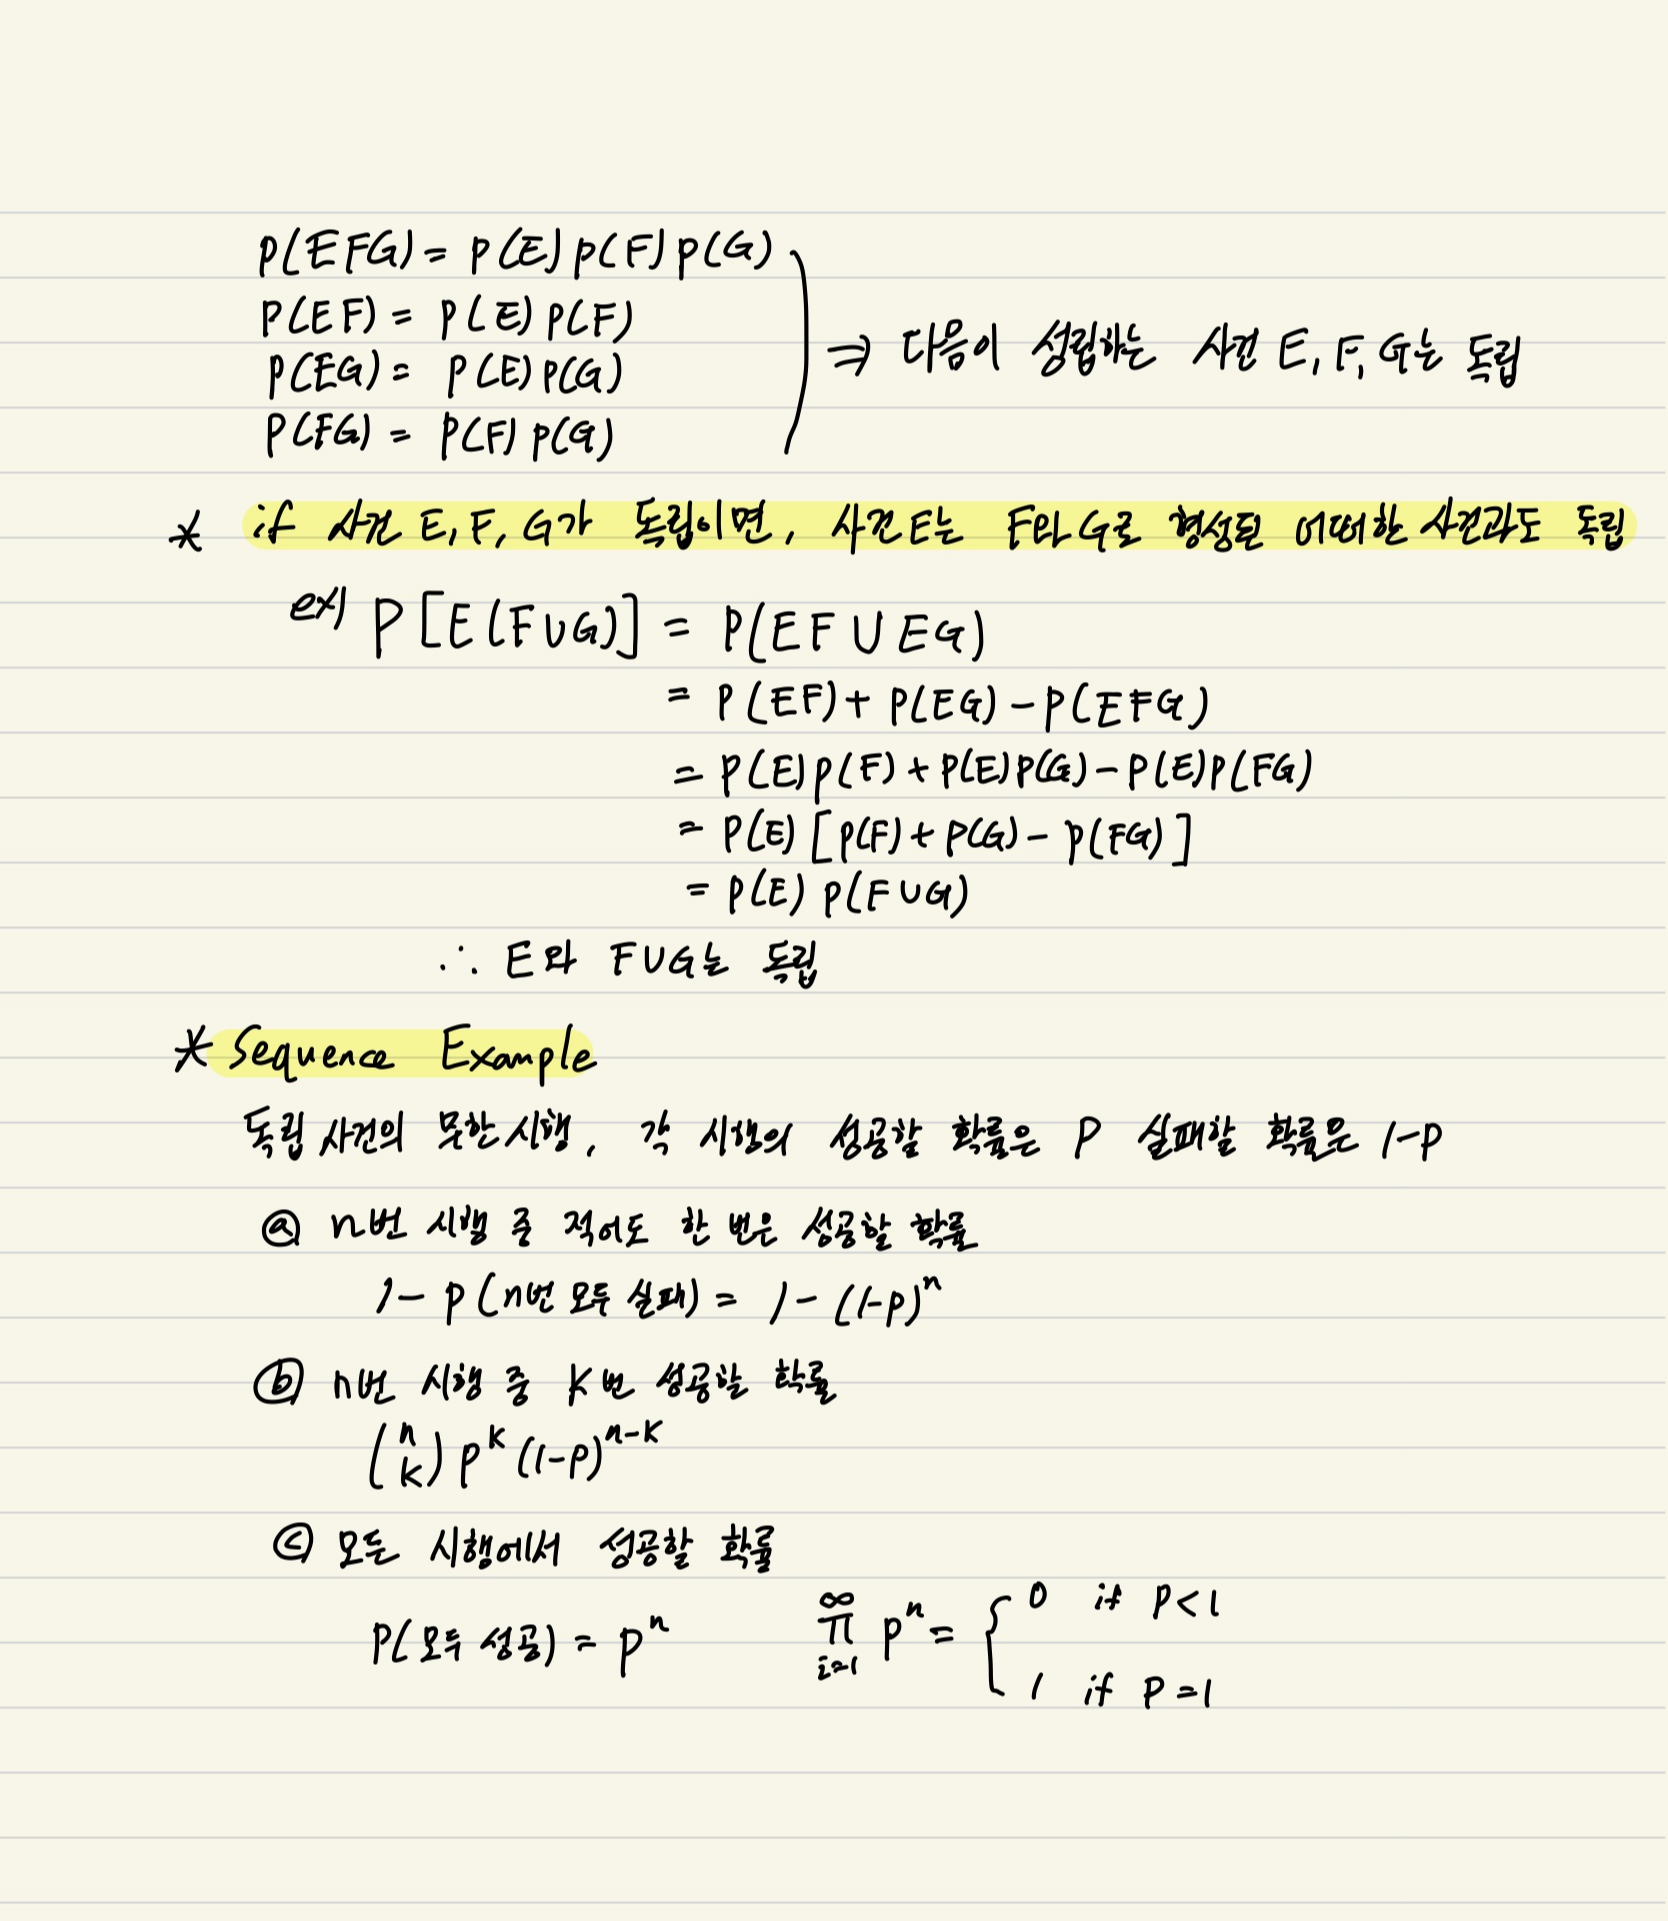 P(EFG) = P(E)P(F)P(G)
P(EF) = P(E)P(F)
P(EG) = P(E)P(G)
P(FG) = P(F)P(G)
⇒ 다음이 성립하는 사건 E, F, G는 독립
* if 사건 E, F, G가 독립이면, 사건 E는 F와 G로 형성된 어떠한 사건과도 독립
ex) P[E(F∪G)] = P(EF ∪ EG)
= P(EF) + P(EG) - P(EFG)
= P(E)P(F) + P(E)P(G) - P(E)P(FG)
= P(E)[P(F) + P(G) - P(FG)]
= P(E)P(F∪G)
∴ E와 F∪G는 독립
* Sequence Example
독립 사건의 무한 시행, 각 시행의 성공할 확률은 P 실패할 확률은 1-P
ⓐ n번 시행 중 적어도 한 번은 성공할 확률
1 - P(n번 모두 실패) = 1 - (1-P)^n
ⓑ n번 시행 중 K번 성공할 확률
(n K) P^K (1-P)^{n-K}
ⓒ 모든 시행에서 성공할 확률
P(모두 성공) = P^n ∏_{i=1}^{∞} P^n = { 0 if P<1
1 if P=1